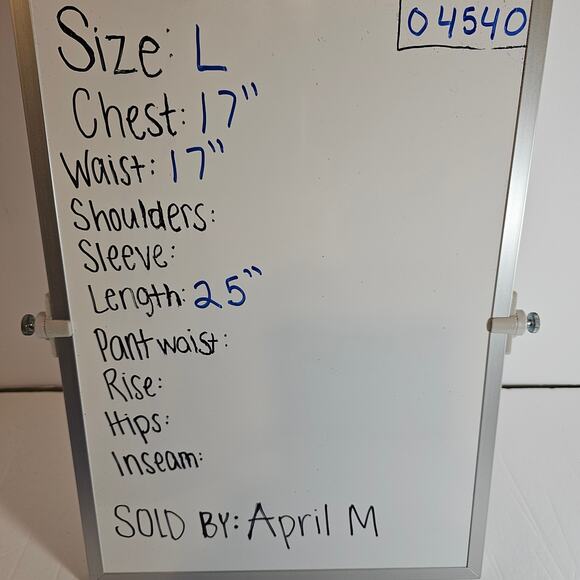 04540
Size: L
Chest: 17"
Waist: 17"
Shoulders:
Sleeve:
Length: 25"
Pant waist:
Rise:
Hips:
Inseam:
SOLD BY: April M